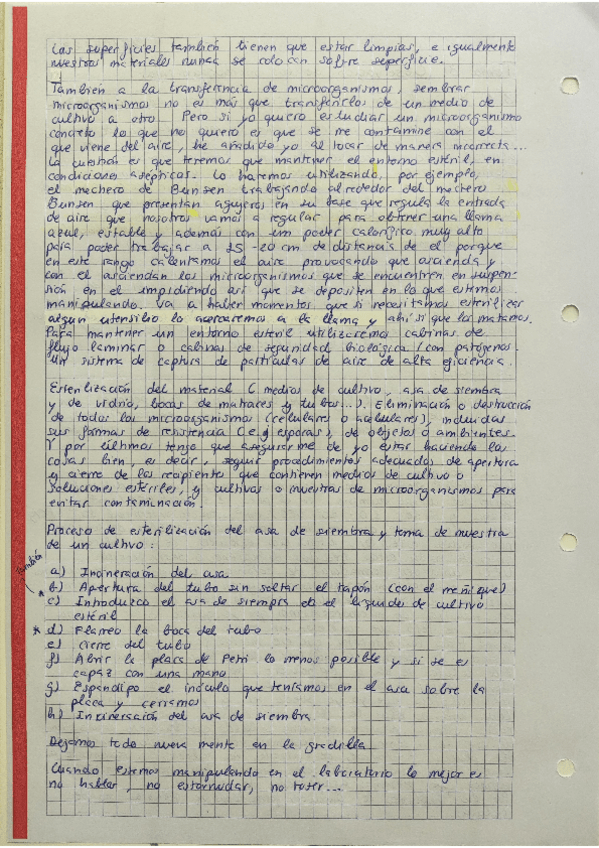 Las superficies también tienen que estar limpias, e igualmente
nuestros materiales nunca se colocan sobre superficie.
También a la transferencia de microorganismos, sembrar
microorganismos no es más que transferirlos de un medio de
cultivo a otro. Pero si yo quiero estudiar un microorganismo
concreto lo que no quiero es que se me contamine con el
que viene del aire, he añadido yo al tocar de manera incorrecta...
la cuestión es que tenemos que mantener el entorno estéril, en
condiciones asépticas. Lo haremos utilizando, por ejemplo,
el mechero de Bunsen trabajando alrededor del mechero
Bunsen que presentan agujeros en su base que regula la entrada
de aire que nosotros vamos a regular para obtener una llama
azul, estable y además con un poder calorífico muy alto
para poder trabajar a 15-20 cm de distancia de el porque
en este rango calentamos el aire provocando que ascienda y
con el asciendan los microorganismos que se encuentren en suspen-
sión en el impidiendo así que se depositen en lo que estemos
manipulando. Va a haber momentos que si necesitamos esterilizar
algun utensilio lo acercaremos a la llama y ahí si que los matamos.
Para mantener un entorno esteril utilizaremos cabinas de
flujo laminar o cabinas de seguridad biológica (con patógenos.
Un sistema de captura de partículas de aire de alta eficiencia.
Esterilización del material (medios de cultivo, asa de siembra
y de vidrio, bocas de matraces y tubos...). Eliminación o destrucción
de todos los microorganismos (celulares o acelulares), incluidas
sus formas de resistencia (e.g esporas), de objetos o ambientes.
Y por últimos tengo que asegurarme de yo estar haciendo las
cosas bien, es decir, seguir procedimientos adecuados de apertura
y cierre de los recipiente que contienen medios de cultivo o
soluciones estériles, y cultivos o muestras de microorganismos para
evitar contaminación.
Proceso de esterilización del asa de siembra y toma de muestra
de un cultivo:
también
a) Incineración del asa
* b) Apertura del tubo sin soltar el tapón (con el meñique)
c) Introduzco el asa de siempra el líquido de cultivo
estéril
* d) Flameo la boca del tubo
e) cierre del tubo
f) Abrir la placa de Petri lo menos posible y si se es
capaz con una mano
g) el inóculo que teníamos en el asa sobre la
placa y cerramos
h) Incineración del asa de siembra
Dejamos todo nueva mente en la gradilla
Cuando estemos manipulando en el laboratorio lo mejor es
no hablar, no estornudar, no toser...